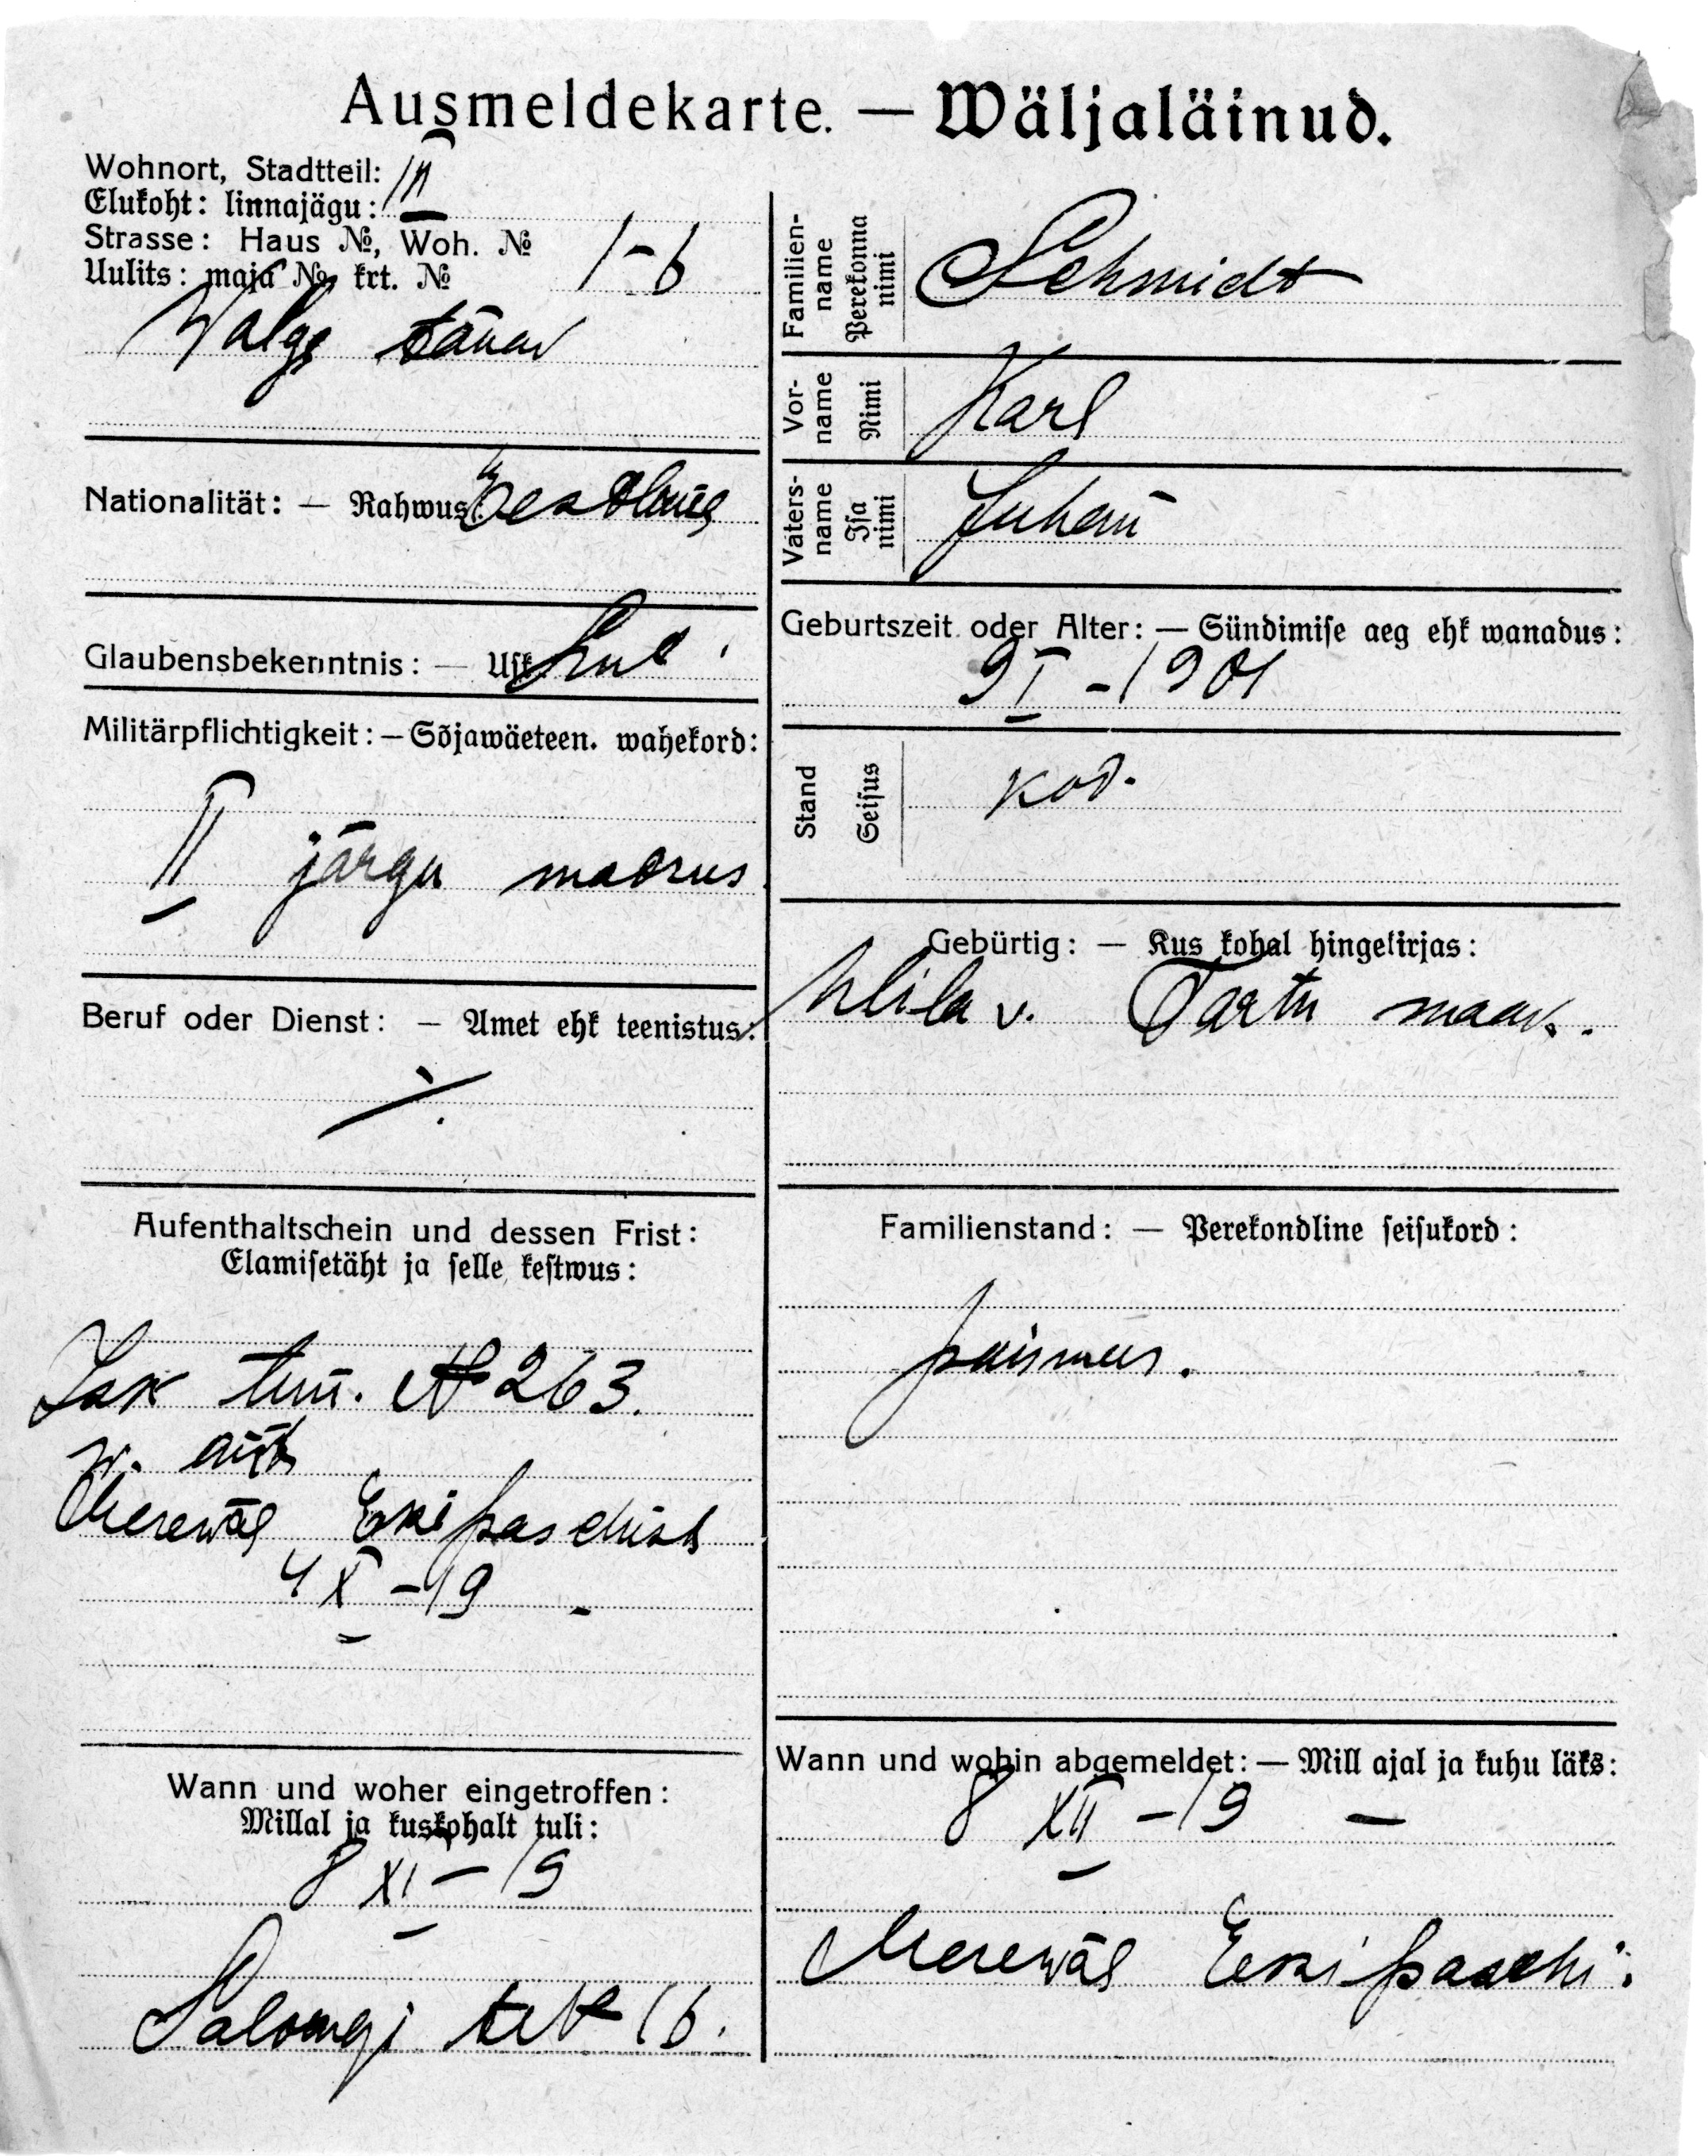 Ausmeldekarte. — Wäljaläinud.
Wohnort, Stadtteil: III
Elukoht: linnajägu:
Strasse: Haus №, Woh. № 1-6
Uulits: maja № krt. №
Walge tänav
Nationalität: — Rahwus: Eestlane
Glaubensbekenntnis: — Usk Lut
Militärpflichtigkeit: — Sõjawäeteen. wahekord:
II järgu madrus
Beruf oder Dienst: — Amet ehk teenistus:
Aufenthaltschein und dessen Frist:
Elamisetäht ja selle kestwus:
Isik tun. № 263.
w. antd
Merewäe Ekipaschist
4 X - 19
Wann und woher eingetroffen:
Millal ja kuskohalt tuli:
8 XI - 19
16.
Familien-name Perekonna nimi Schmidt
Vor-name Nimi Karl
Vaters-name Isa nimi Juhan
Geburtszeit oder Alter: — Sündimise aeg ehk wanadus:
9 I - 1901
Stand Seisus kod.
Gebürtig: — Kus kohal hingekirjas:
v. Tartu maak.
Familienstand: — Perekondline seisukord:
poismees.
Wann und wohin abgemeldet: — Mill ajal ja kuhu läks:
8 XII - 19 —
Merewäe Eekipaaschi